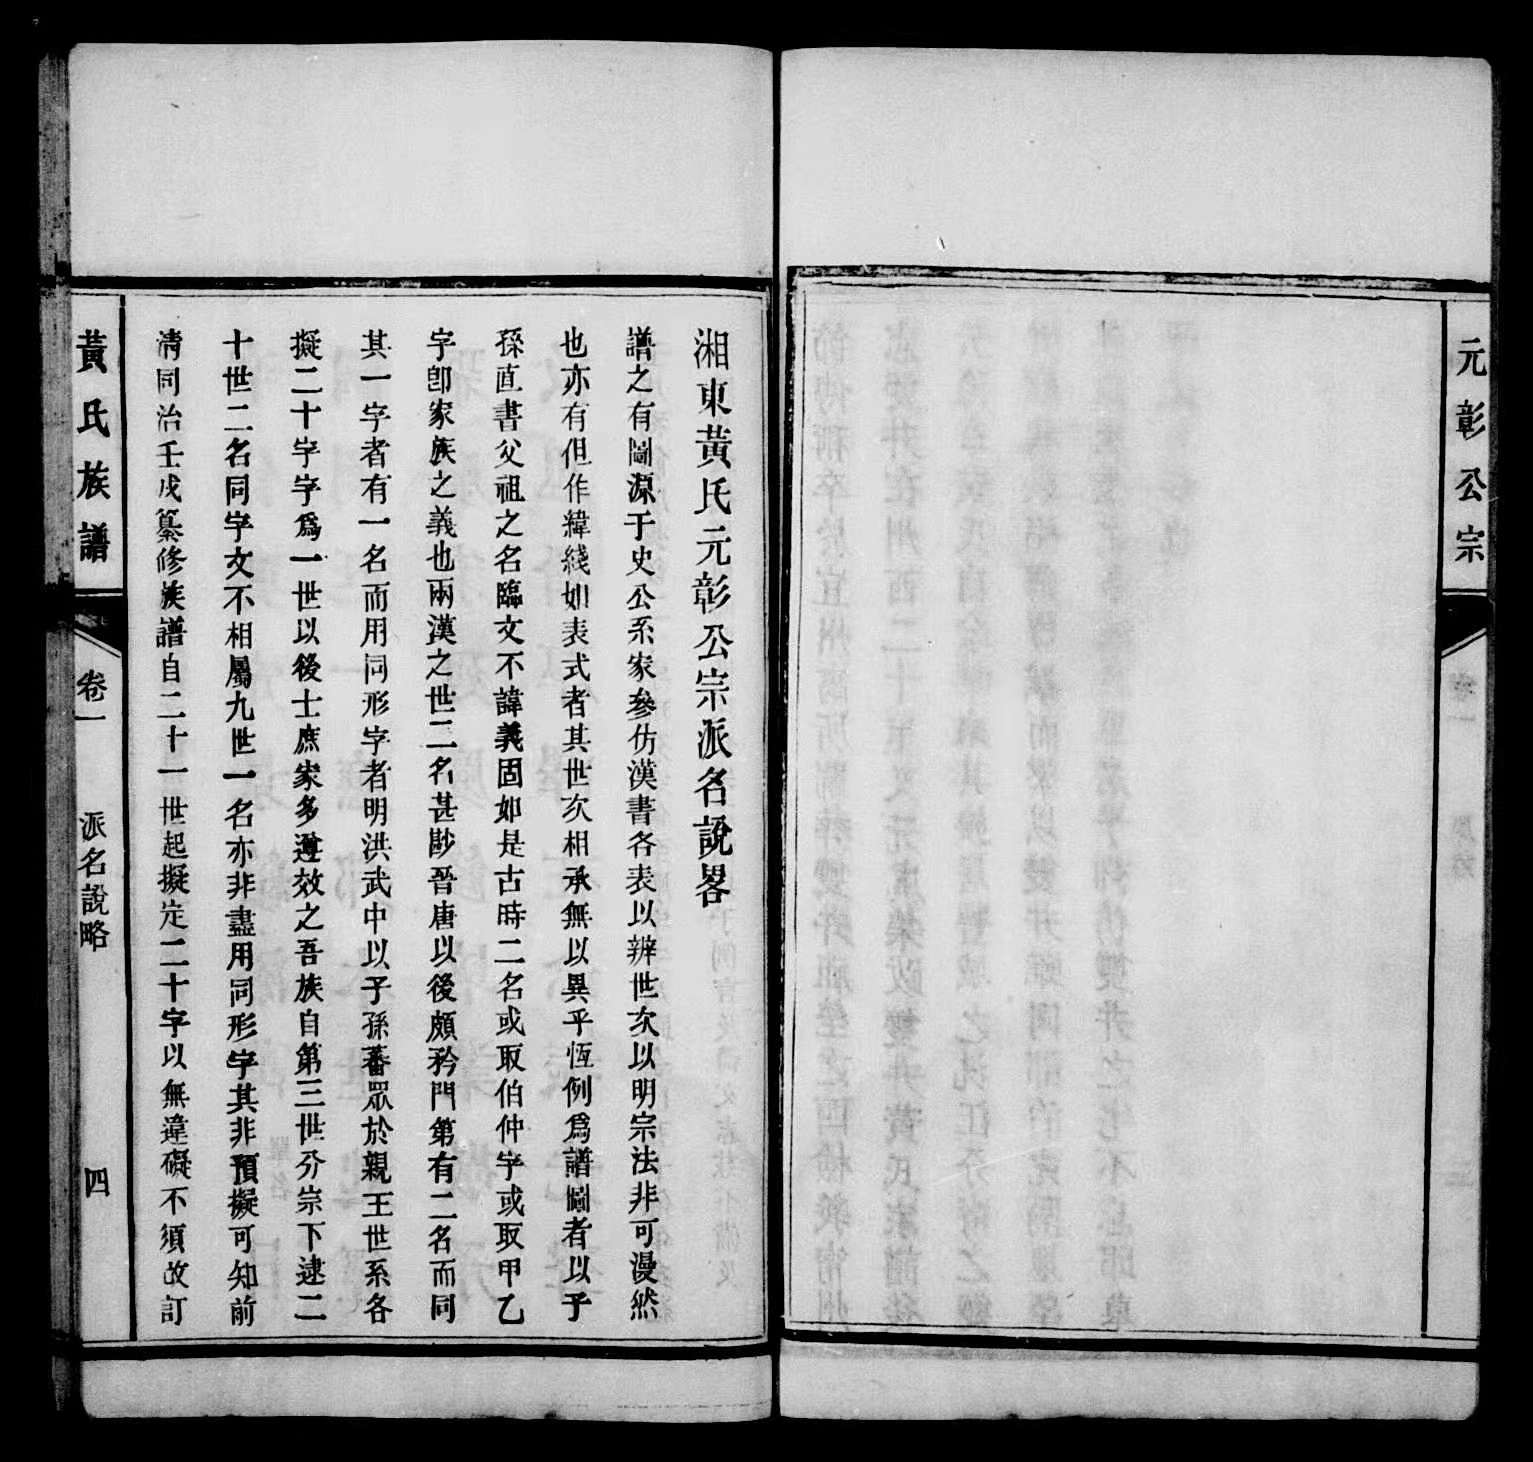 元彰公宗
湘東黃氏元彰公宗派名說畧
譜之有圖源于史公系家參仿漢書各表以辨世次以明宗法非可漫然
也亦有但作緯綫如表式者其世次相承無以異乎恆例爲譜圖者以子
孫直書父祖之名臨文不諱義固如是古時二名或取伯仲字或取甲乙
字卽家族之義也兩漢之世二名甚尠晉唐以後頗矜門第有二名而同
其一字者有一名而用同形字者明洪武中以子孫蕃眾於親王世系各
擬二十字字爲一世以後士庶家多遵效之吾族自第三世分宗下逮二
十世二名同字文不相屬九世一名亦非盡用同形字其非預擬可知前
清同治壬戌纂修族譜自二十一世起擬定二十字以無違礙不須改訂
黃氏族譜
卷一
派名說略
四